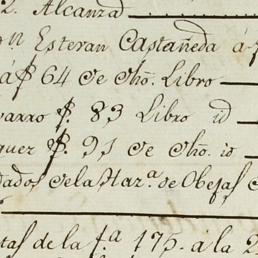 2. Alcanzad
on Esteran Castañeda á
á f 64 de dho. Libro
varro f. 83 Libro id
guez f. 91 de dho. id
dados de la Haz.a de Obejas
tas de la f.a 175. á la 2